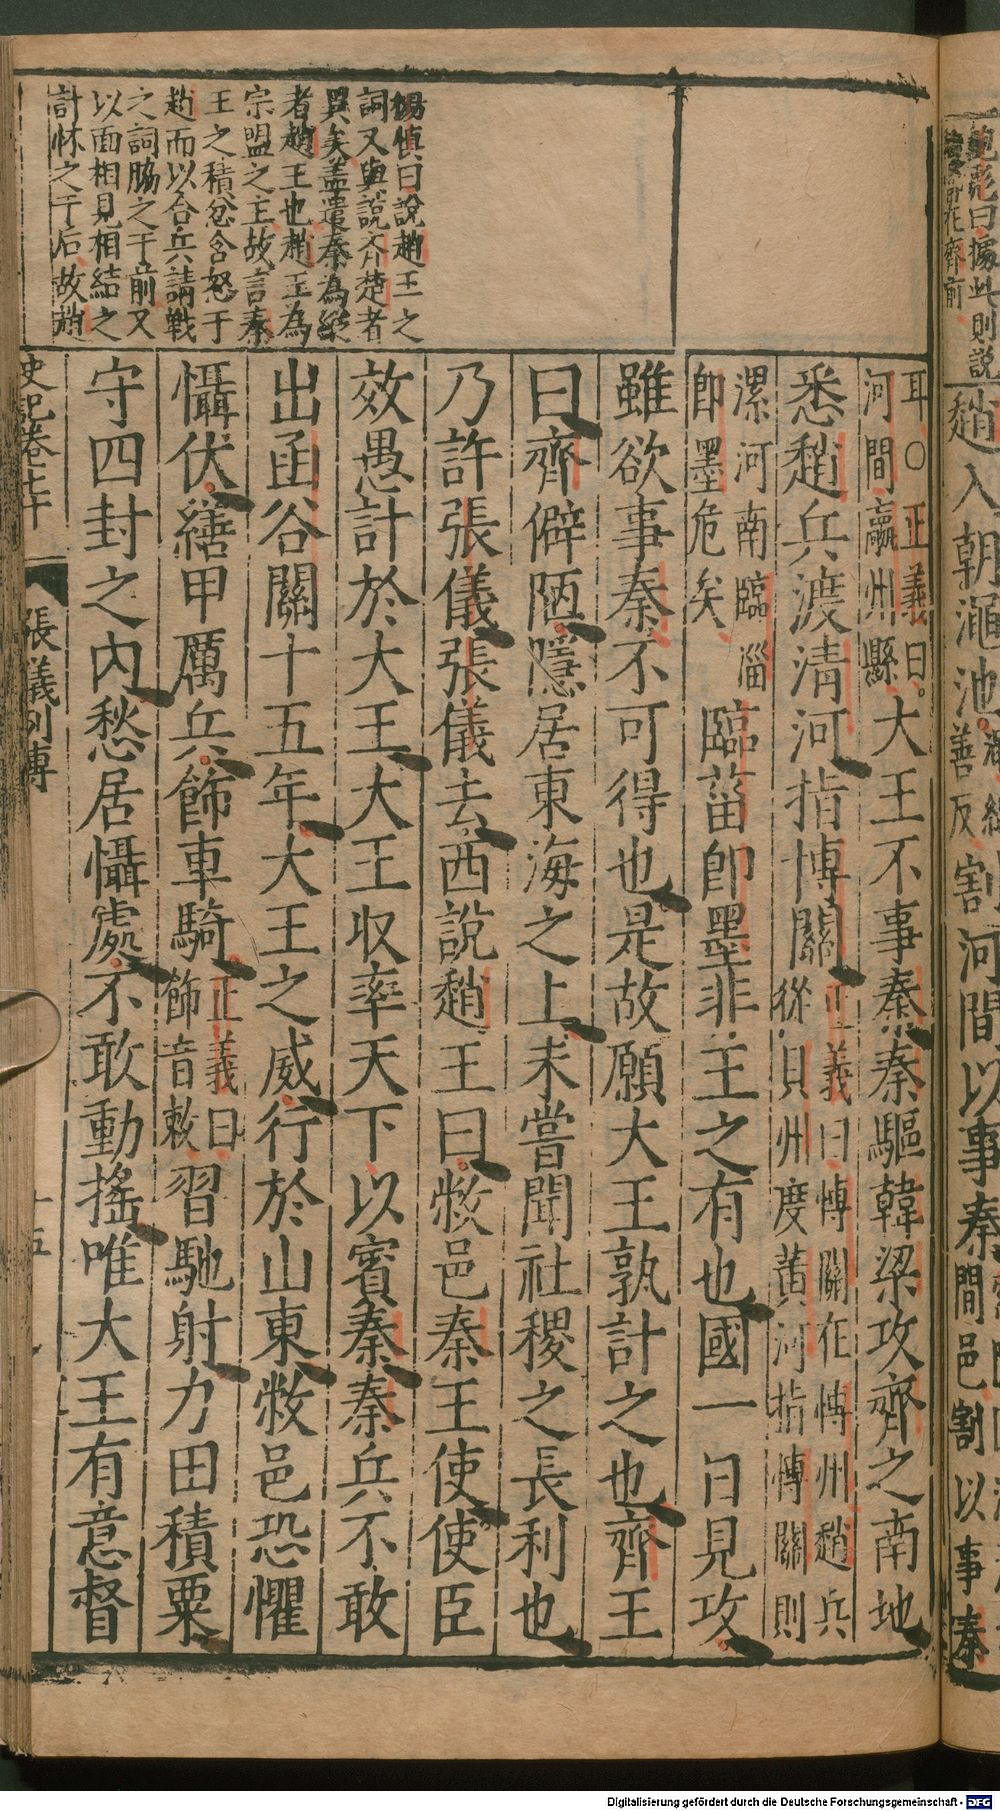 趙入朝澠池割河間以事秦
鮑彪曰據此則說
耳○正義曰
河間瀛州縣
大王不事秦秦驅韓梁攻齊之南地
悉趙兵渡淸河指博關
正義曰博關在博州趙兵
從貝州度黃河指博關則
漯河南臨淄
即墨危矣
臨菑即墨非王之有也國一日見攻
雖欲事秦不可得也是故願大王孰計之也齊王
曰齊僻陋隱居東海之上未嘗聞社稷之長利也
乃許張儀張儀去西說趙王曰敝邑秦王使使臣
效愚計於大王大王收率天下以賓秦秦兵不敢
出函谷關十五年大王之威行於山東敝邑恐懼
懾伏繕甲厲兵飾車騎
正義曰
飾音敕
習馳射力田積粟
守四封之內愁居懾處不敢動搖唯大王有意督
楊慎曰說趙王之
詞又與說齊楚者
異矣盖遣秦為縱
者趙王也趙王為
宗盟之主故言秦
王之積忿含怒于
趙而以合兵請戰
之詞脇之于前又
以面相見相結之
計怵之于后故趙
史記卷七十
張儀列傳
十五
Digitalisierung gefördert durch die Deutsche Forschungsgemeinschaft - DFG